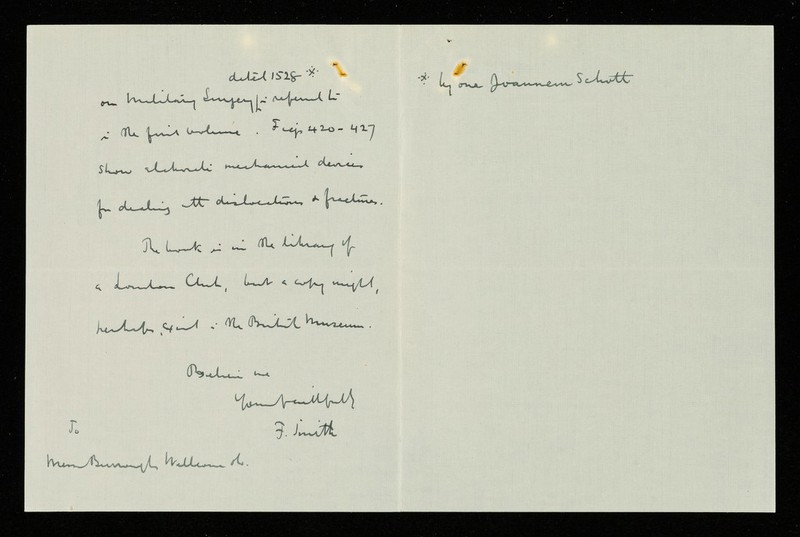 dated 1528 *
on Military Surgery is referred to
in the first volume. Figs 420-427
show elaborate mechanical devices
for dealing with dislocations & fractures.
The book is in the library of
a London Club, but a copy might,
perhaps, exist in the British Museum.
Believe me
Yours faithfully
F. Smith
To
Messrs Burroughs Wellcome & Co.
* by one Joannem Schott